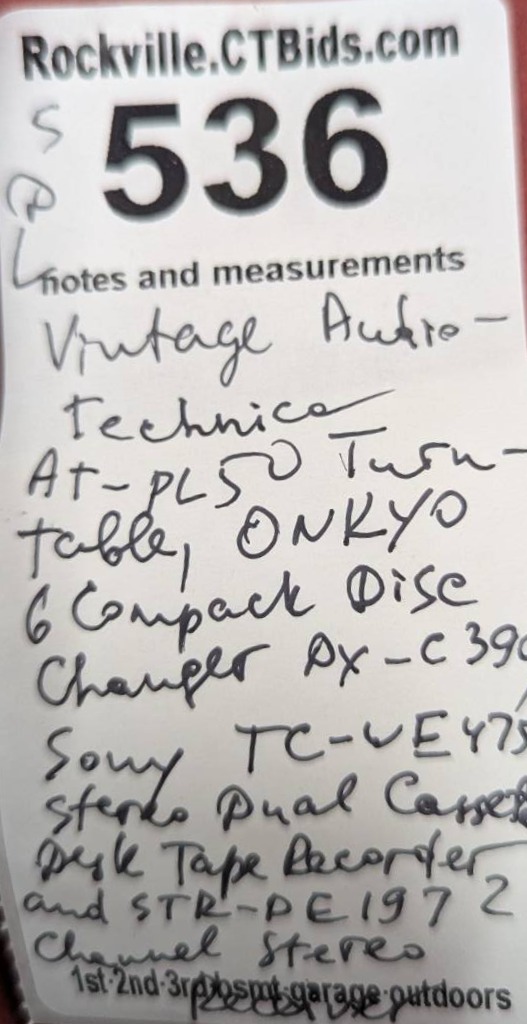 Rockville.CTBids.com
S
536
R
L
notes and measurements
Vintage Audio-
Technica
AT-PL50 Turn-
table, ONKYO
6 Compack Disc
Changer DX-C390
Sony TC-WE475
Stereo Dual Casset
Desk Tape Recorder
and STR-DE197 2
Channel Stereo
1st·2nd·3rd·bsmt·garage·outdoors
Receiver